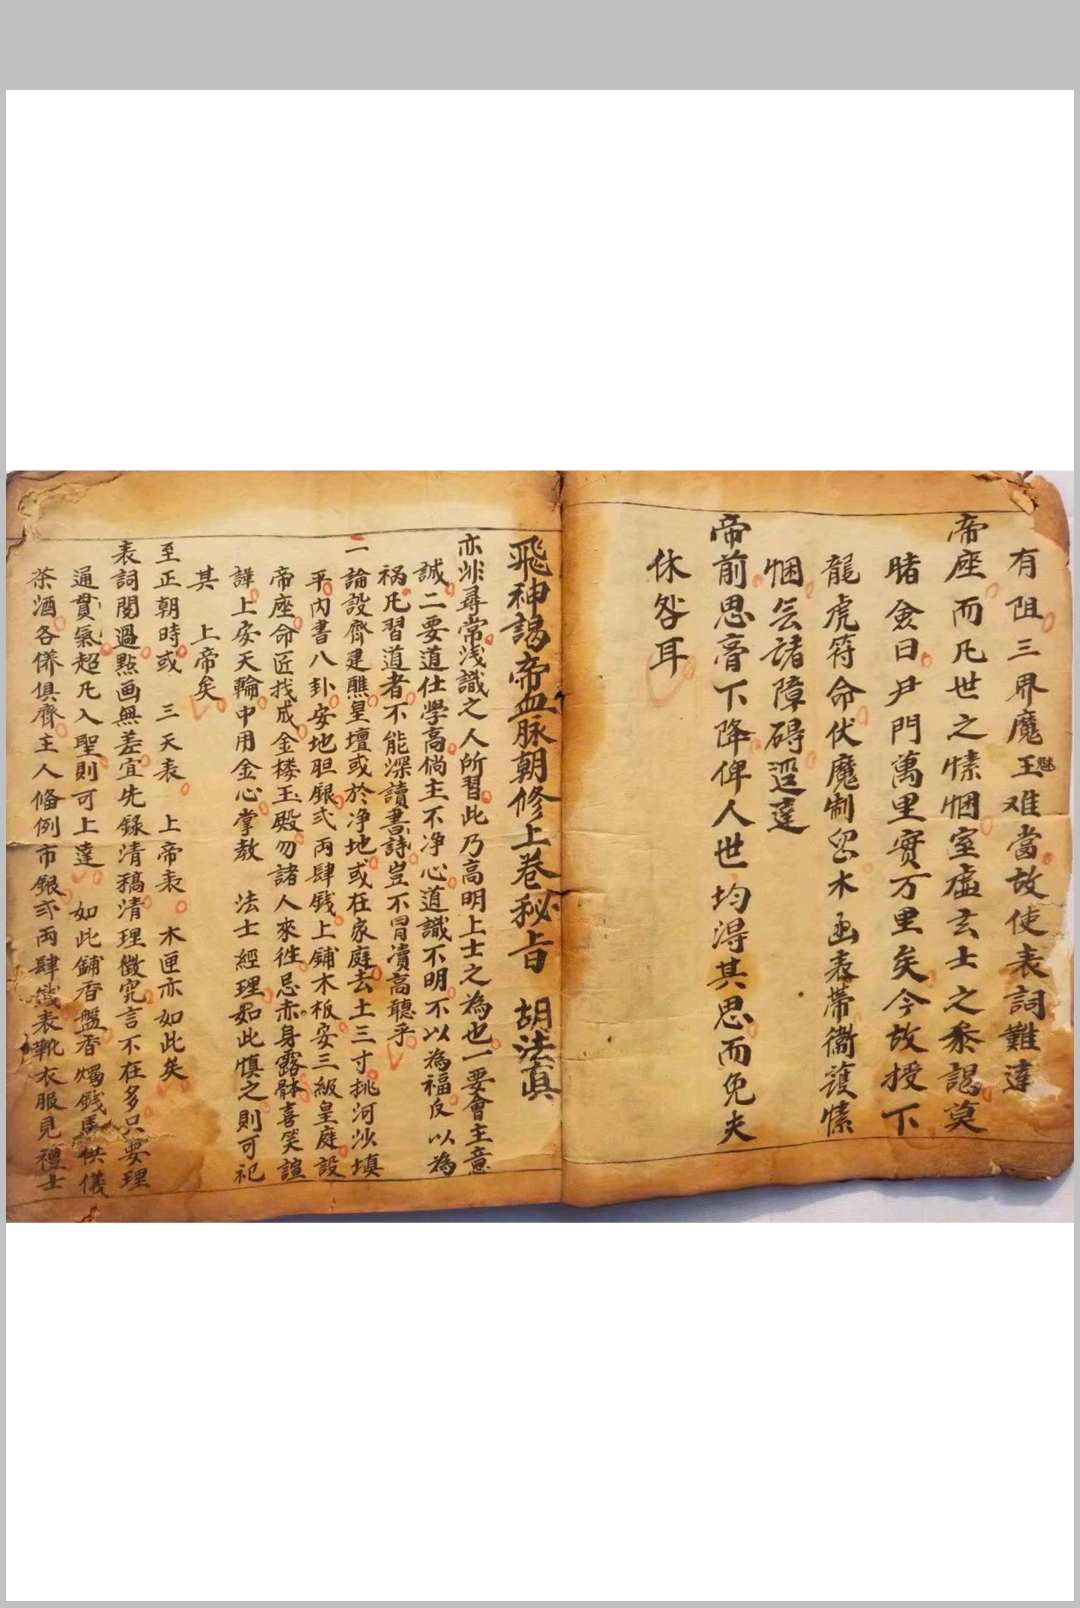 有阻三界魔王魅难當故使表詞難達
帝座而凡世之愫悃室虛玄士之忝謁莫
睹僉曰尹門萬里實万里矣今故授下
龍虎符命伏魔制邪木函表帶衞護愫
悃矣諸障碍迳達
帝前思膏下降俾人世均得其思而免夫
休咎耳
飛神謁帝血脉朝修上卷秘旨 胡法真
亦非尋常浅識之人所習此乃高明上士之為也一要會主意
誠二要道仕學高倘主不净心道識不明不以為福反以為
祸凡習道者不能深讀書詩岂不冒瀆高聽乎
一論設齊建醮皇壇或於净地或在家庭去土三寸挑河沙填
平内書八卦安地胆銀弍両肆戔上鋪木板安三級皇庭設
帝座命匠找成金楼玉殿勿諸人來徃忌赤身露体喜笑諠
譁上安天輪中用金心掌教 法士經理如此慎之則可祀
其 上帝矣
至正朝時或 三天表 上帝表 木匣亦如此矣
表詞閱過點画無差宜先錄清稿清理徵究言不在多只要理
通貫氣超凡入聖則可上達 如此鋪香盤香燭戔馬供儀
茶酒各俻俱齊主人偹例市銀弍両肆戔表靴衣服見禮士